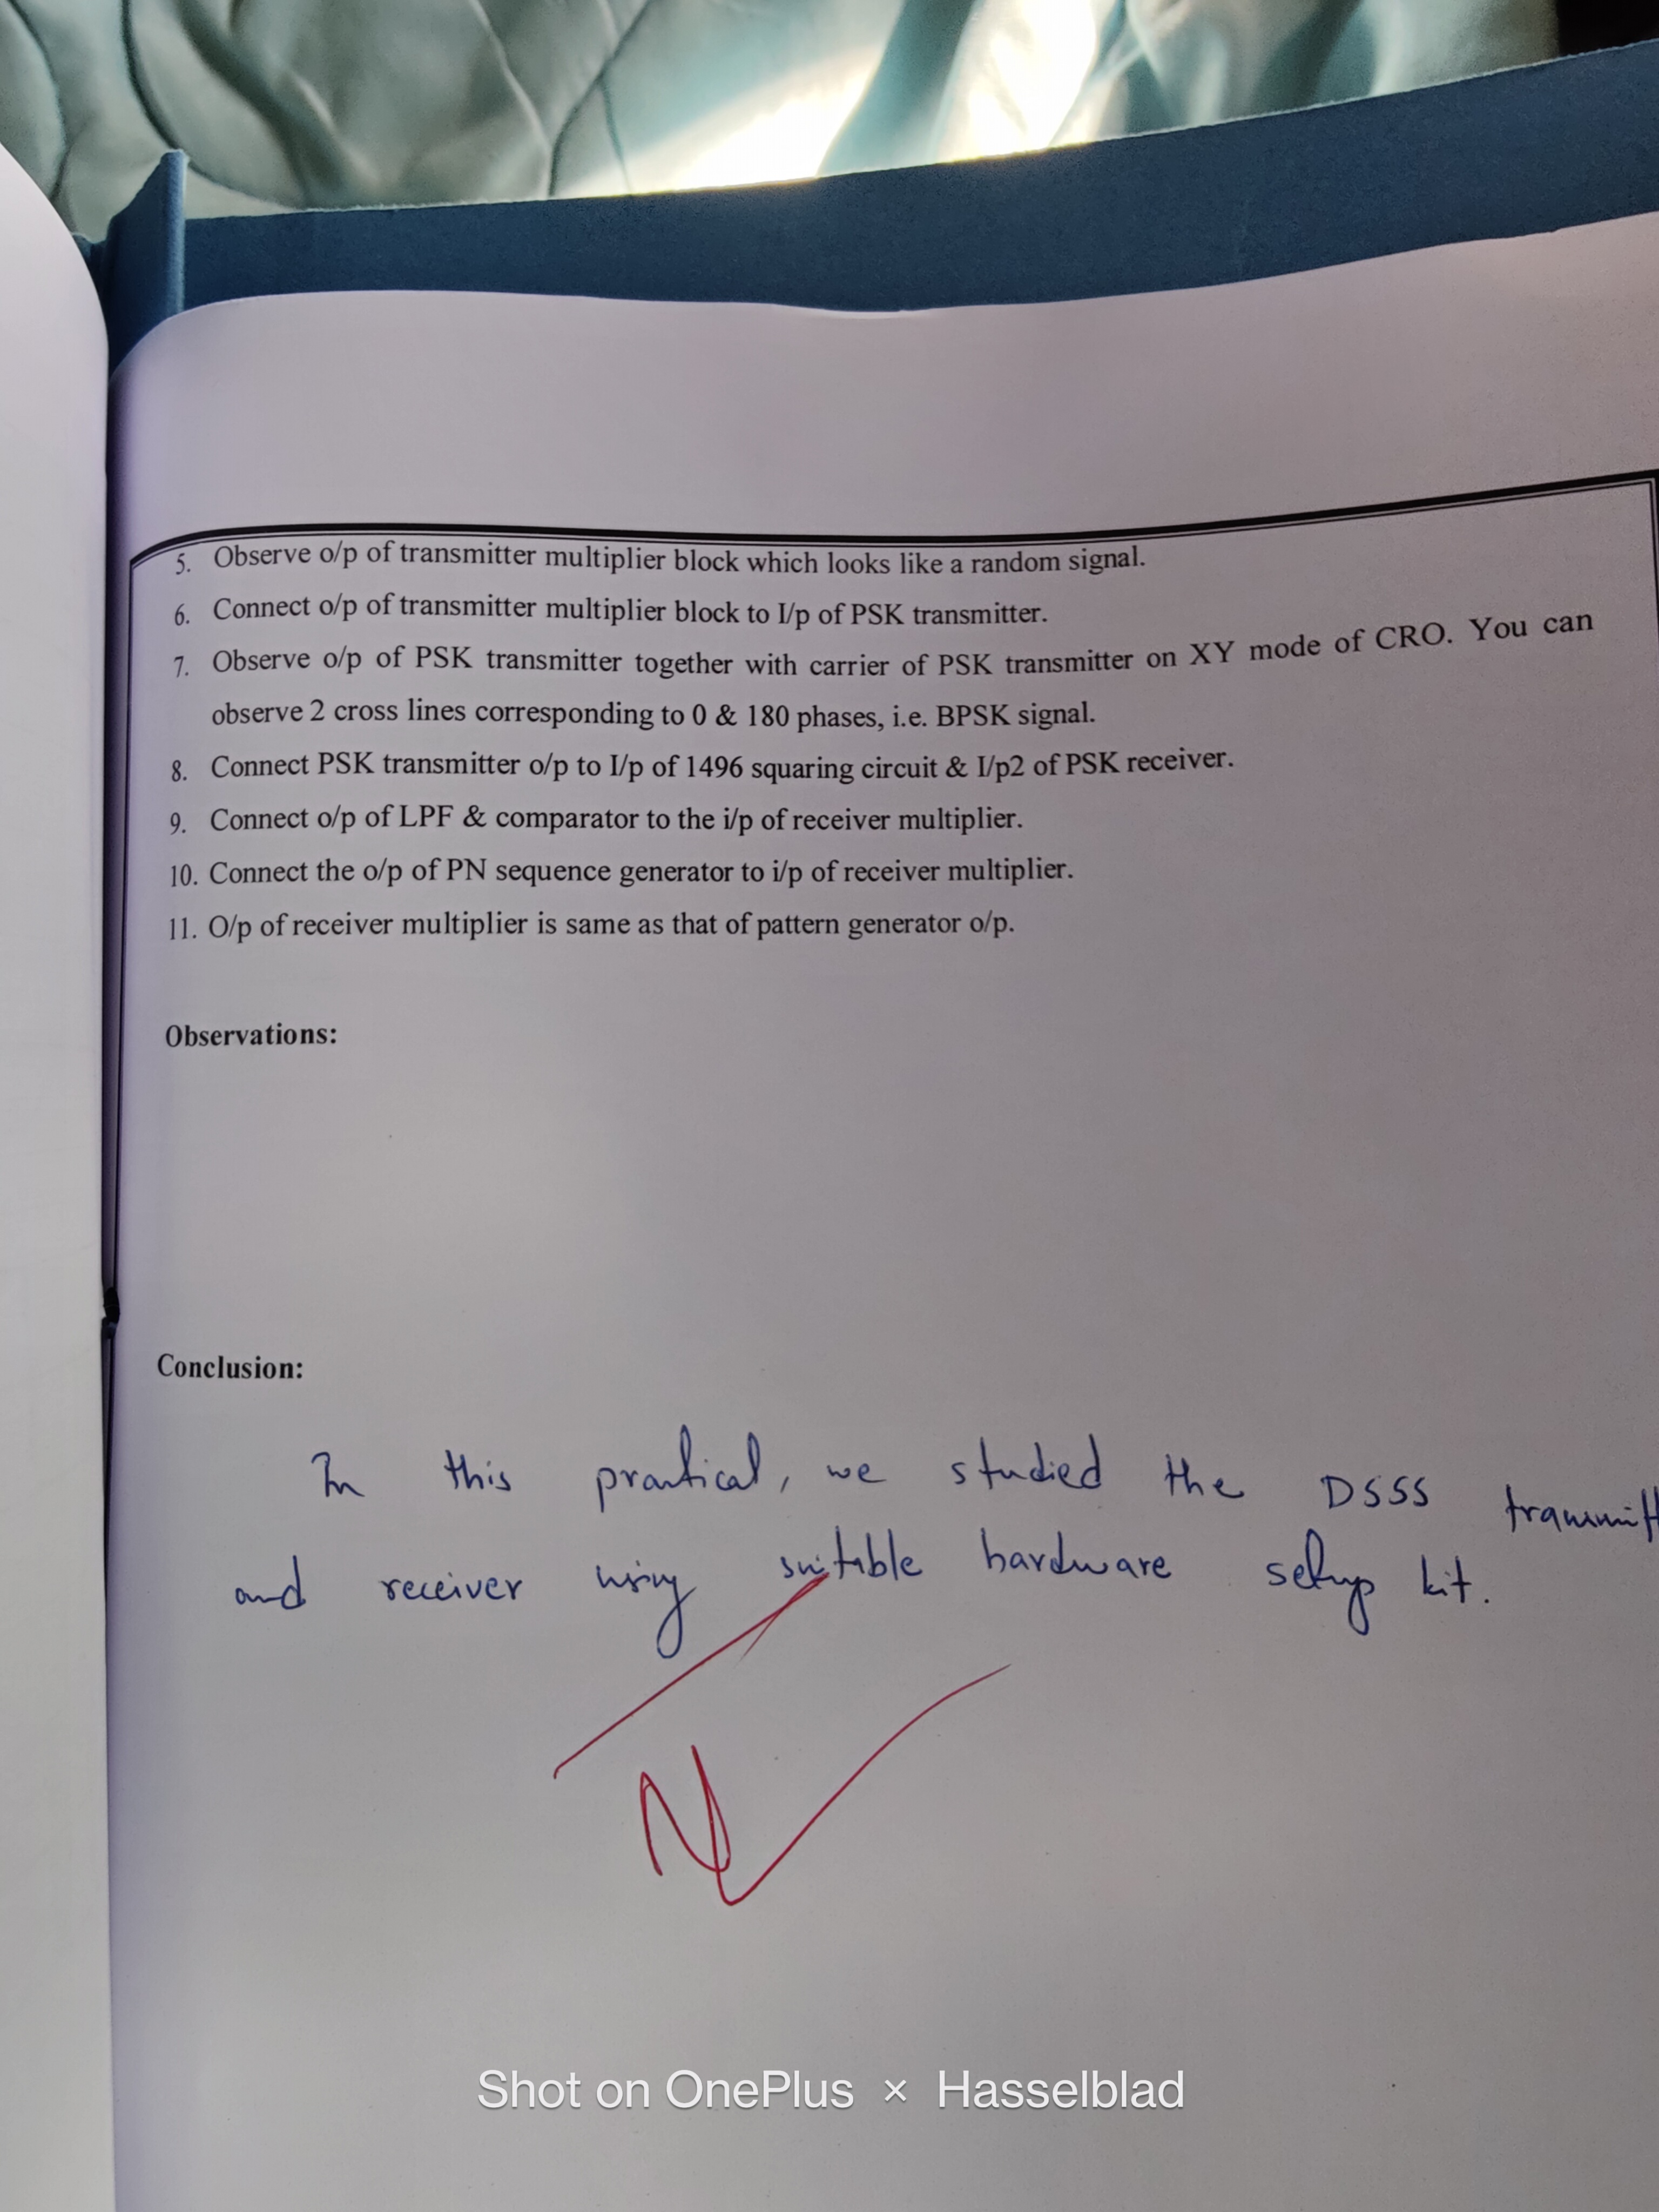 5. Observe o/p of transmitter multiplier block which looks like a random signal.
6. Connect o/p of transmitter multiplier block to I/p of PSK transmitter.
7. Observe o/p of PSK transmitter together with carrier of PSK transmitter on XY mode of CRO. You can
observe 2 cross lines corresponding to 0 & 180 phases, i.e. BPSK signal.
8. Connect PSK transmitter o/p to I/p of 1496 squaring circuit & I/p2 of PSK receiver.
9. Connect o/p of LPF & comparator to the i/p of receiver multiplier.
10. Connect the o/p of PN sequence generator to i/p of receiver multiplier.
11. O/p of receiver multiplier is same as that of pattern generator o/p.
Observations:
Conclusion:
In this practical, we studied the DSSS
and receiver using suitable hardware setup kit.
Shot on OnePlus × Hasselblad